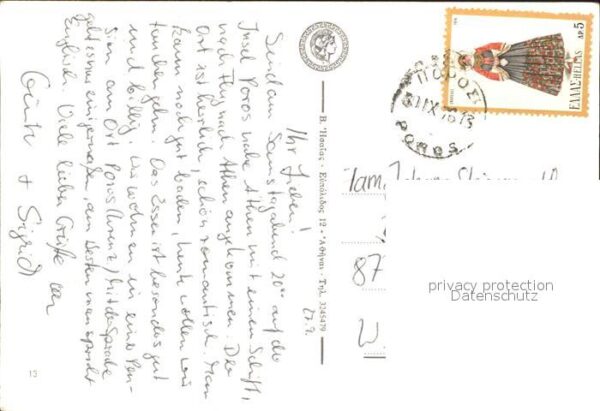 27.9.
Ihr Lieben!
Sind am Samstagabend 20°° auf die
Insel Poros nahe Athen mit einem Schiff,
nach Flug nach Athen angekommen. Der
Ort ist herrlich, schön romantisch. Man
kann noch gut baden, heute wollen wir
tauchen gehn. Das Essen ist besonders gut
und billig. Wir wohnen in einer Pen-
sion am Ort Poros. Mit der Sprache
geht es uns einigermaßen, am besten man spricht
Englisch. Viele liebe Grüße von
Günter + Sigrid
Β. Ήσαΐας - Εὐπόλιδος 12 - Ἀθῆναι - Τηλ. 3245479
13
ΠΟΡΟΣ
IX 76 13
POROS
ΕΛΛΑΣ-HELLAS
ΔΡ. 5
Fam.
87
W
privacy protection
Datenschutz